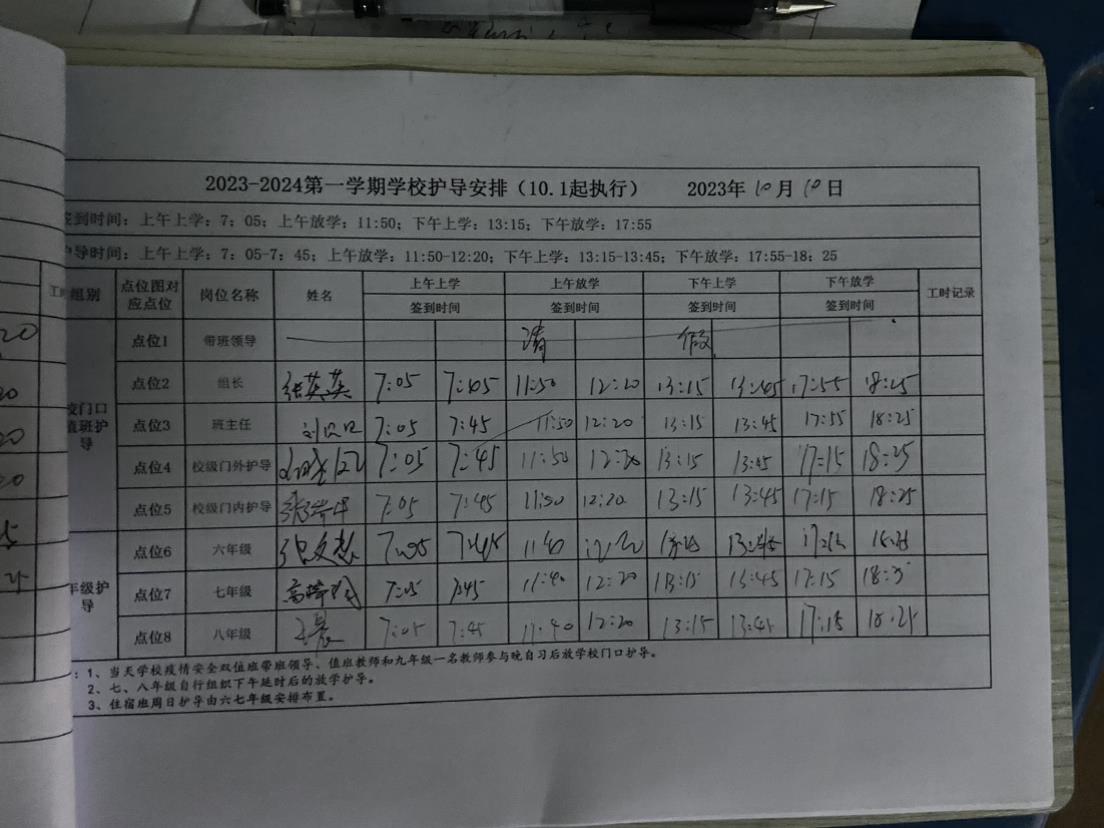 2023-2024第一学期学校护导安排（10.1起执行） 2023年 10 月 10 日
签到时间：上午上学：7：05；上午放学：11:50；下午上学：13:15；下午放学：17:55
护导时间：上午上学：7：05-7：45；上午放学：11:50-12:20；下午上学：13:15-13:45；下午放学：17:55-18：25
组别 点位图对应点位 岗位名称 姓名 上午上学 上午放学 下午上学 下午放学 工时记录
签到时间 签到时间 签到时间 签到时间
点位1 带班领导 请 假
校门口值班护导
点位2 组长 张英英 7:05 7:45 11:50 12:20 13:15 13:45 17:55 18:25
点位3 班主任 7:05 7:45 11:50 12:20 13:15 13:45 17:55 18:25
点位4 校级门外护导 7:05 7:45 11:50 12:20 13:15 13:45 17:15 18:25
点位5 校级门内护导 7:05 7:45 11:50 12:20 13:15 13:45 17:15 18:25
年级护导
点位6 六年级 7:05 7:45 11:40 12:20 13:45
点位7 七年级 7:05 7:45 11:40 12:20 13:15 13:45 17:15
点位8 八年级 7:05 7:45 11:40 12:20 13:15 13:45 17:15 18:25
：1、当天学校疫情安全双值班带班领导、值班教师和九年级一名教师参与晚自习后放学校门口护导。
2、七、八年级自行组织下午延时后的放学护导。
3、住宿班周日护导由六七年级安排布置。